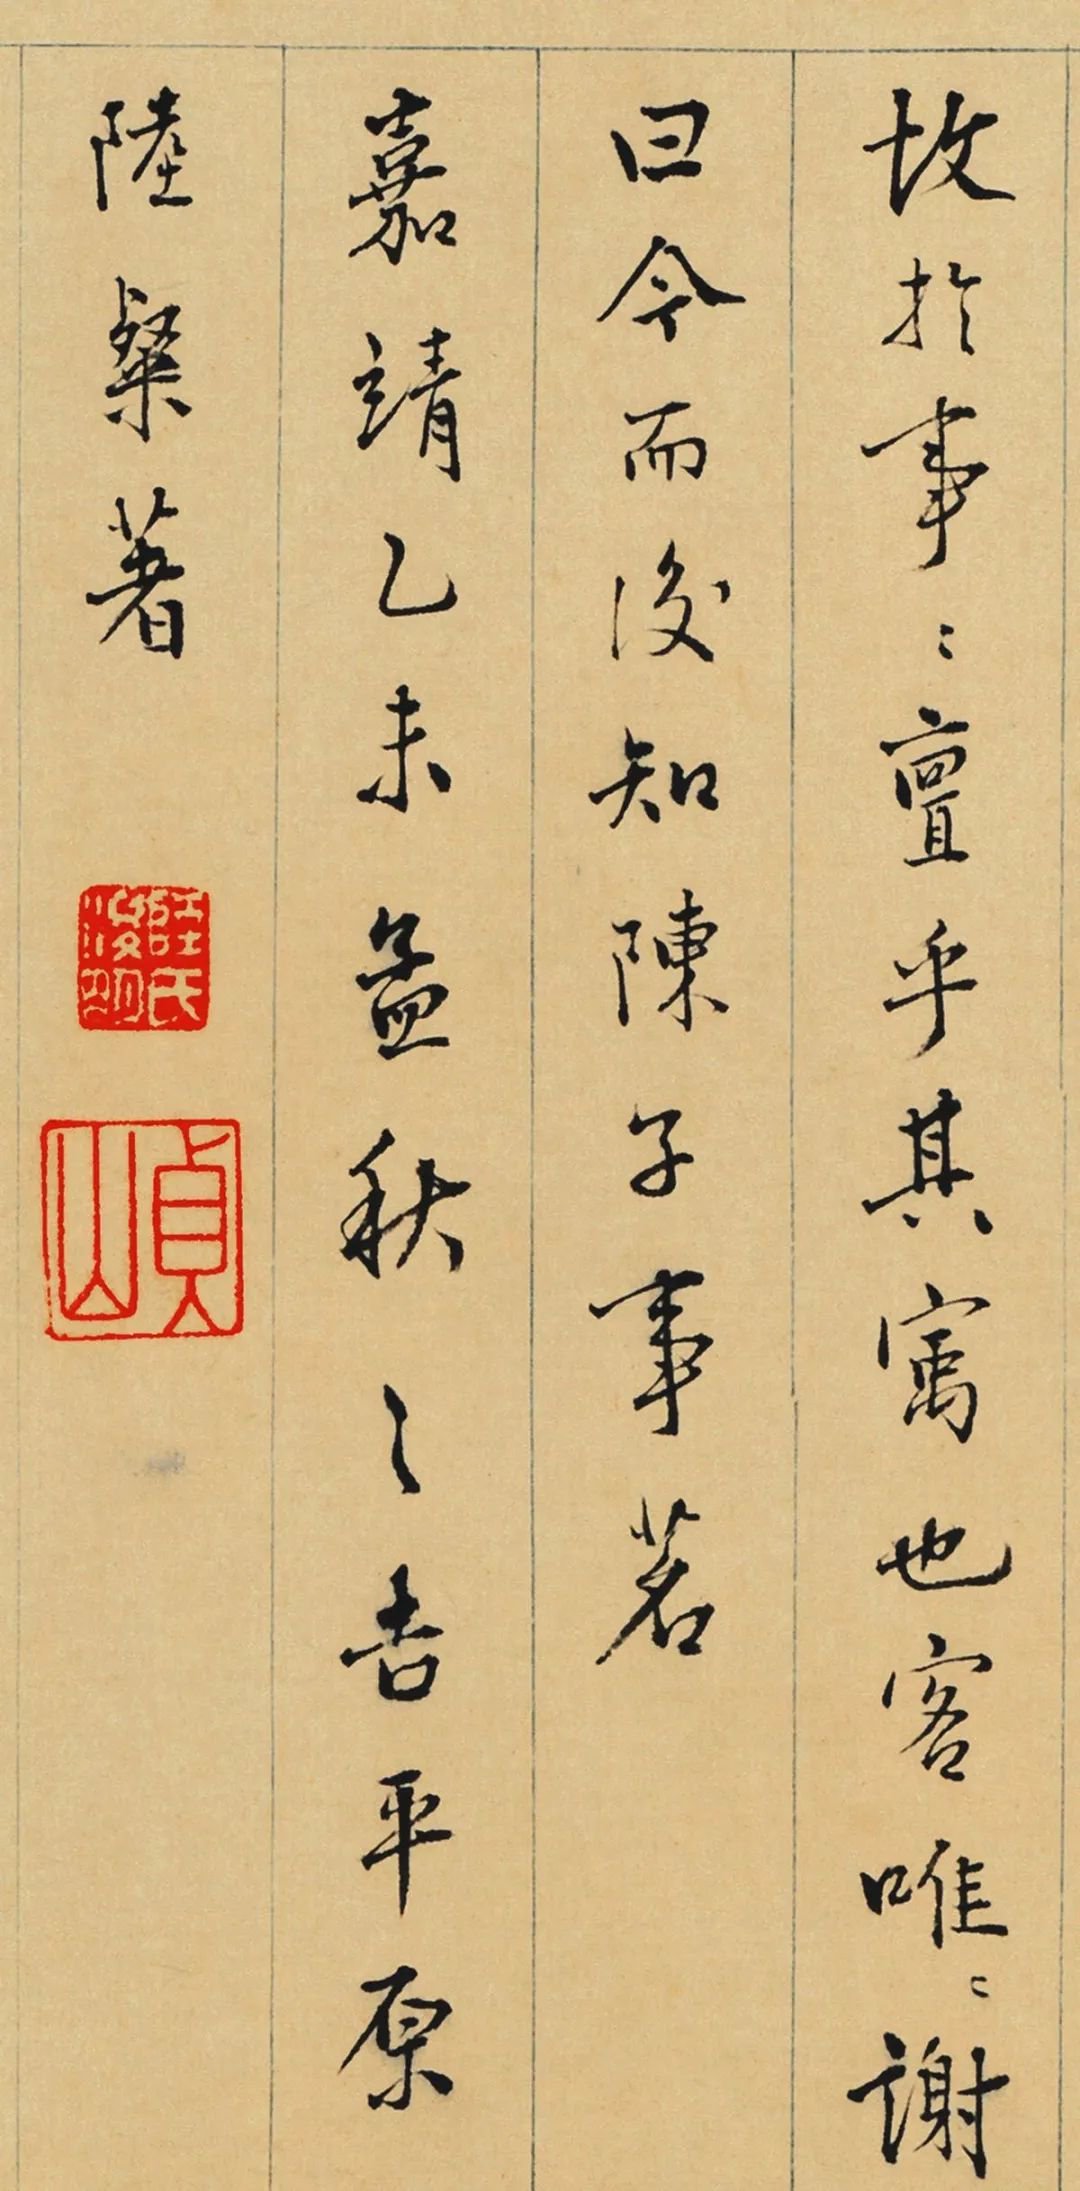 故於事〻亶乎其寓也客唯〻謝
曰今而後知陳子事茗
嘉靖乙未孟秋之吉平原
陸粲著
陸氏浚明
貞山